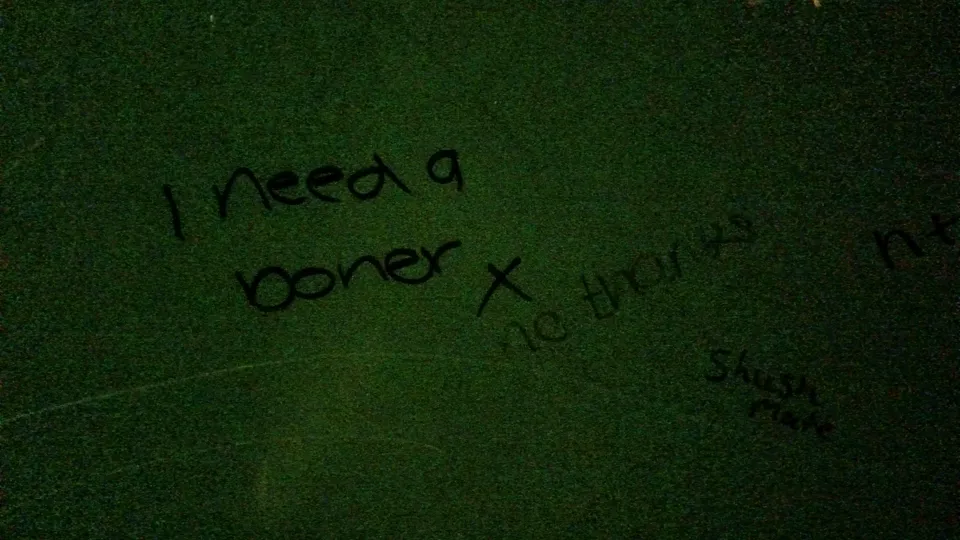 I need a
boner x
no thanks
Shush
mate